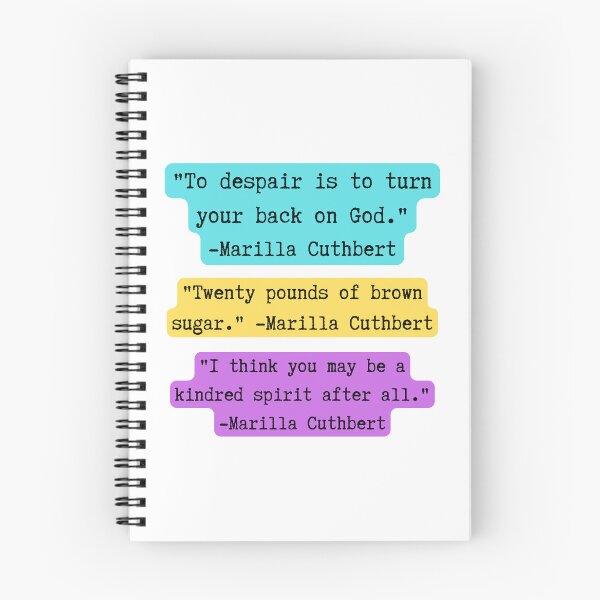 "To despair is to turn
your back on God."
-Marilla Cuthbert
"Twenty pounds of brown
sugar." -Marilla Cuthbert
"I think you may be a
kindred spirit after all."
-Marilla Cuthbert